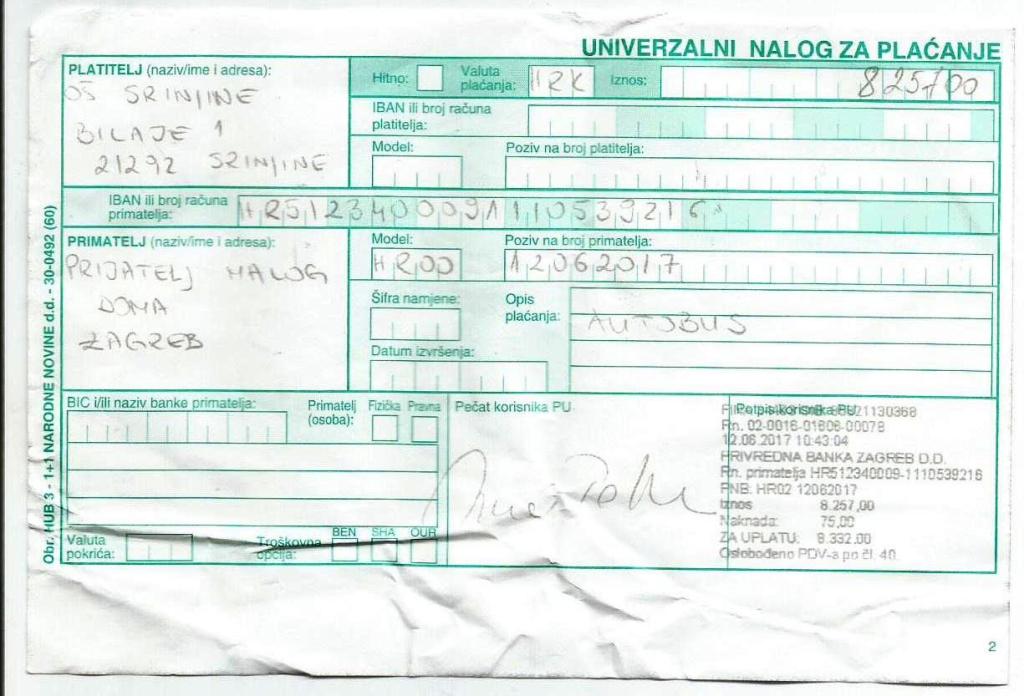 UNIVERZALNI NALOG ZA PLAĆANJE
PLATITELJ (naziv/ime i adresa):
OŠ SRINJINE
BILAJE 1
21292 SRINJINE
Hitno:
Valuta plaćanja: HRK
Iznos: 825700
IBAN ili broj računa platitelja:
Model:
Poziv na broj platitelja:
IBAN ili broj računa primatelja: HR5123400091110539216
PRIMATELJ (naziv/ime i adresa):
PRIJATELJ MALOG
DOMA
ZAGREB
Model: HR00
Poziv na broj primatelja: 12062017
Šifra namjene:
Opis plaćanja: AUTOBUS
Datum izvršenja:
BIC i/ili naziv banke primatelja:
Primatelj (osoba):
Fizička Pravna
Valuta pokrića:
Troškovna opcija:
BEN SHA OUR
Pečat korisnika PU
Potpis korisnika PU
Rn. 02-0016-01606-00078
12.06.2017 10:43:04
PRIVREDNA BANKA ZAGREB D.D.
Rn. primatelja HR512340009-1110539216
PNB: HR02 12062017
Iznos 8.257,00
Naknada: 75,00
ZA UPLATU: 8.332,00
Oslobođeno PDV-a po čl. 40.
Obr. HUB 3 - 1+1 NARODNE NOVINE d.d. - 30-0492 (60)
2